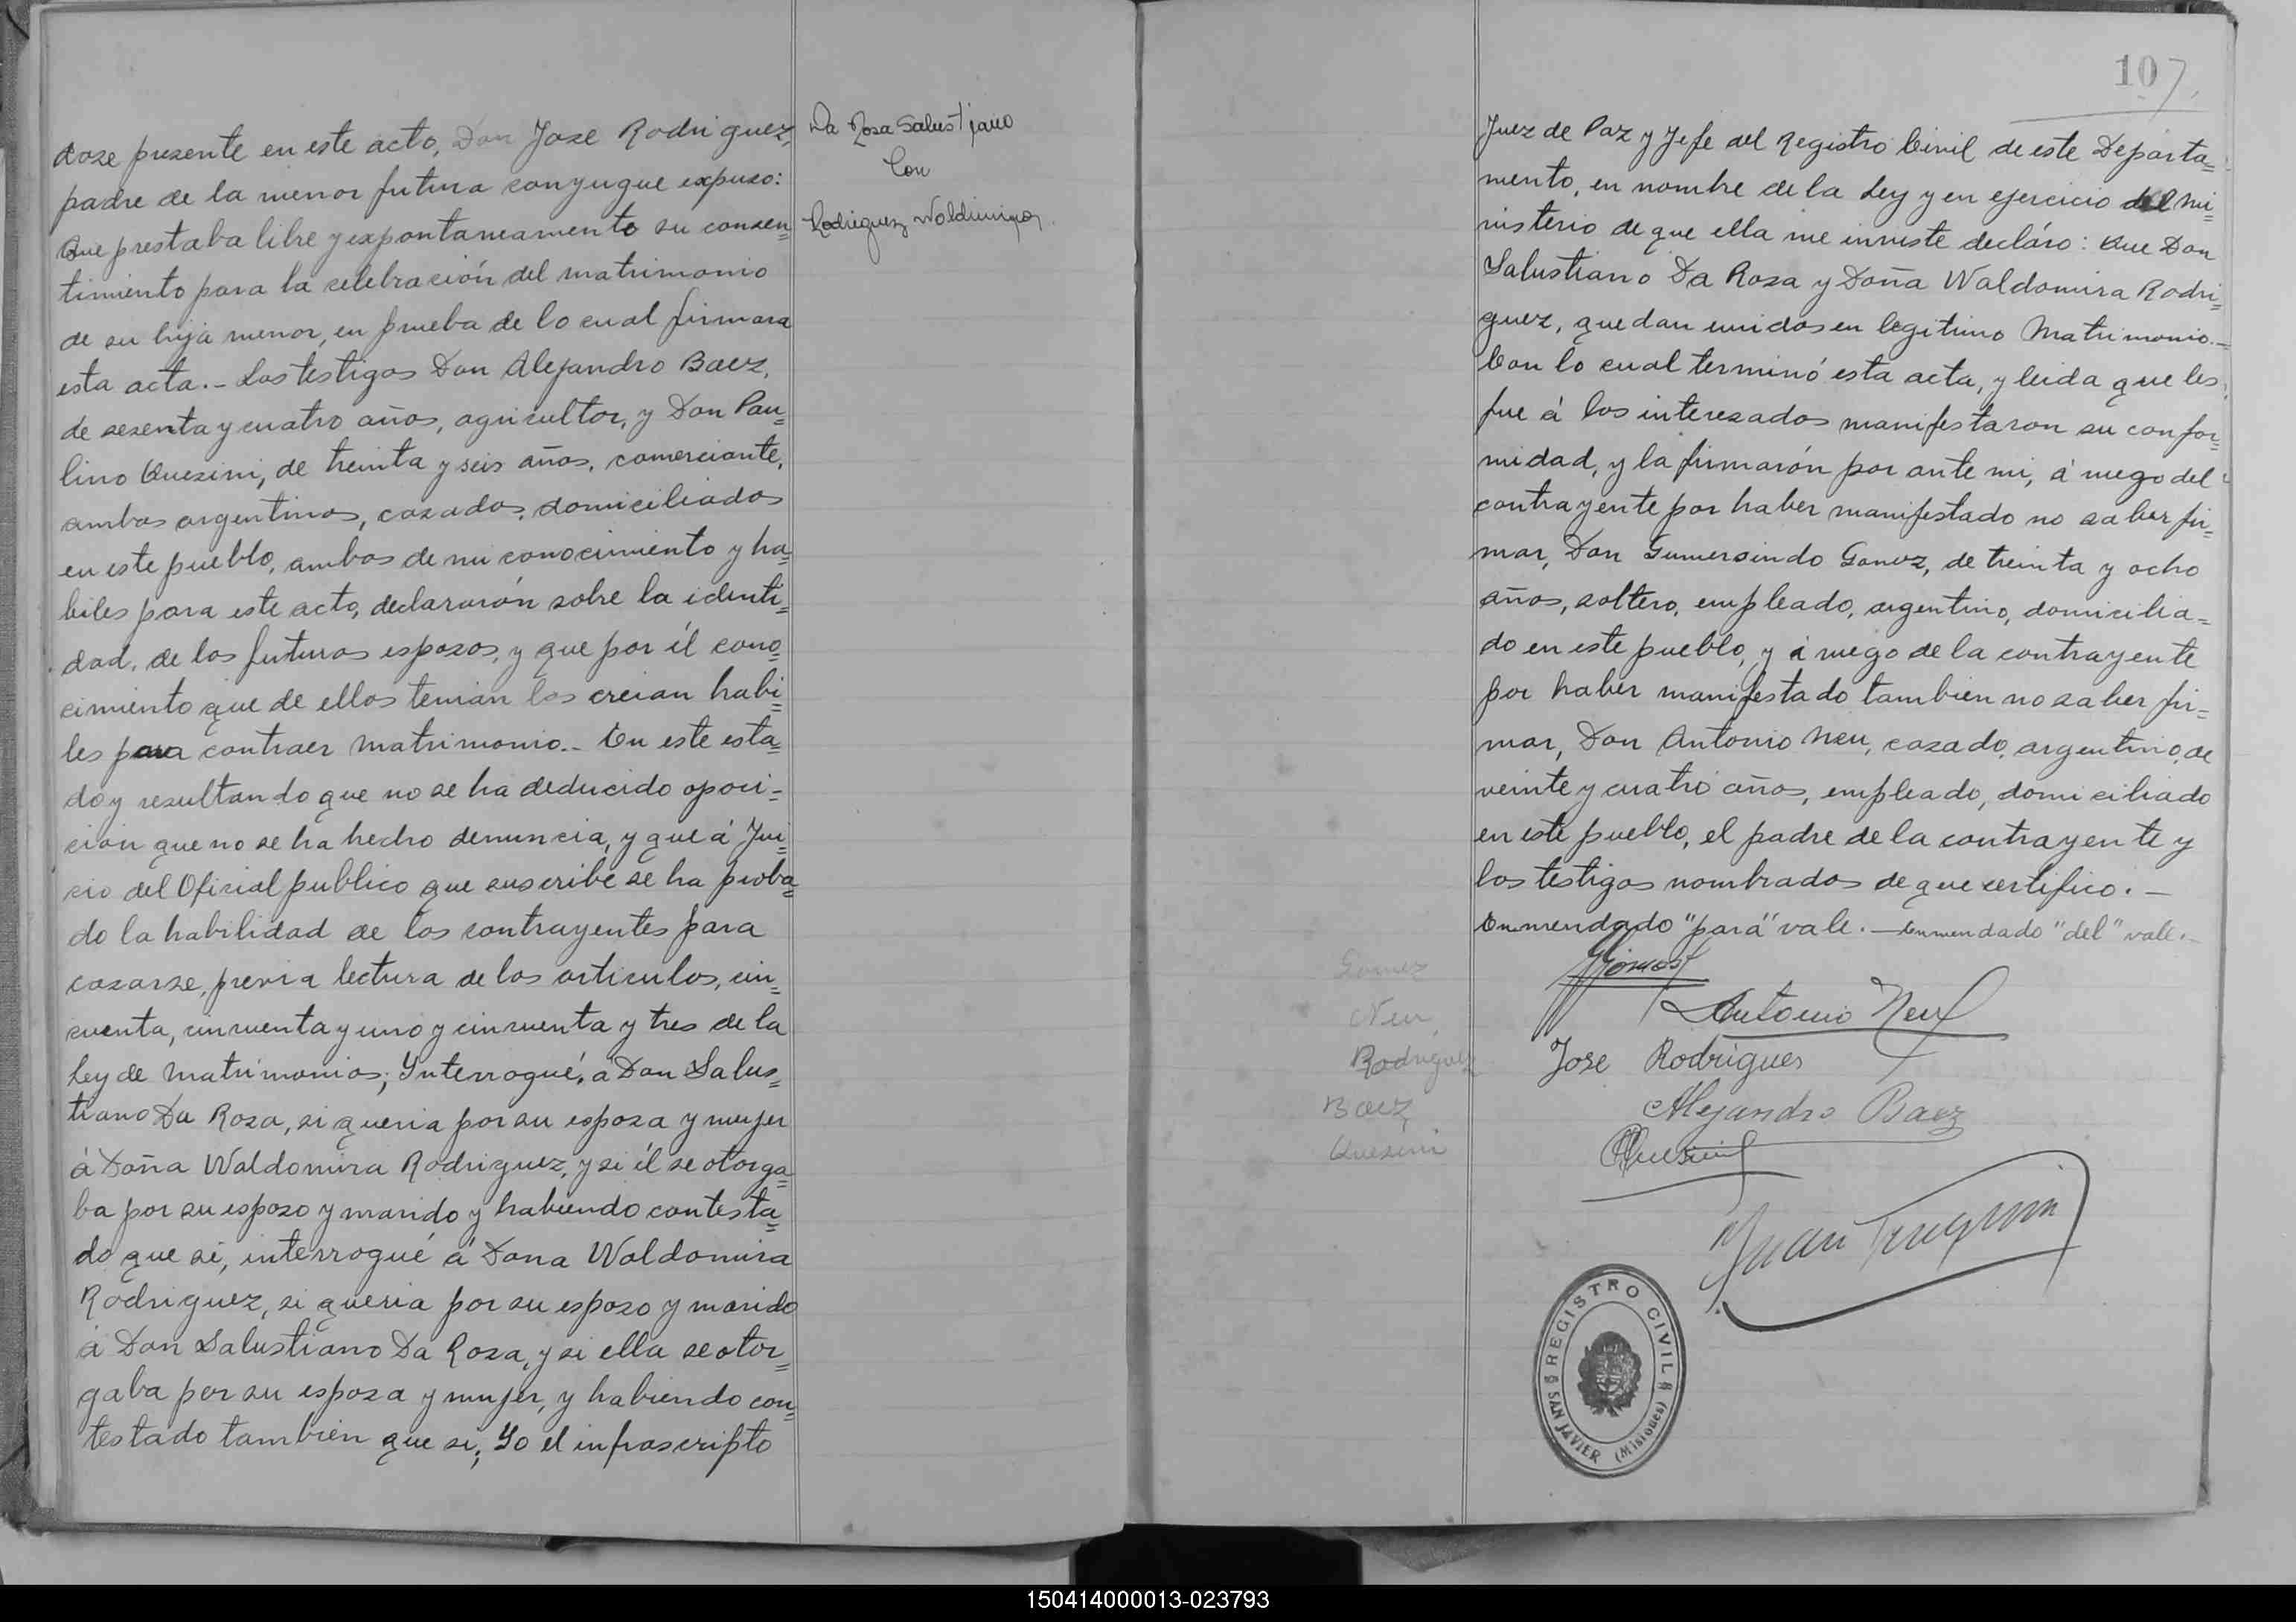 dose presente en este acto, Don Jose Rodriguez,
padre de la menor futura conyugue expuso:
Que prestaba libre y expontaneamente su consen=
timiento para la celebración del matrimonio
de su hija menor, en prueba de lo cual firmara
esta acta.- Los testigos Don Alejandro Baez,
de sesenta y cuatro años, agricultor, y Don Pau=
lino Quesini, de treinta y seis años, comerciante,
ambos argentinos, casados, domiciliados
en este pueblo, ambos de mi conocimiento y ha=
biles para este acto, declararón sobre la identi=
dad, de los futuros esposos, y que por él cono=
cimiento que de ellos tenian los creian habi=
les para contraer matrimonio.- En este esta=
do y resultando que no se ha deducido oposi-
ción que no se ha hecho denuncia, y que á Jui=
cio del Oficial publico que suscribe se ha proba=
do la habilidad de los contrayentes para
casarse, previa lectura de los articulos, cin=
cuenta, cincuenta y uno y cincuenta y tres de la
Ley de Matrimonios; Ynterrogué, á Don Salus=
tiano Da Rosa, si queria por su esposa y mujer
á Doña Waldomira Rodriguez, y si él se otorga=
ba por su esposo y marido y habiendo contesta=
do que si, interrogué á Dona Waldomira
Rodriguez, si queria por su esposo y marido
á Don Salustiano Da Rosa, y si ella se otor=
gaba por su esposa y mujer, y habiendo con=
testado tambien que si; Yo el infrascripto
Da Rosa Salustiano
Con
Rodriguez Waldimira
107
Juez de Paz y Jefe del Registro Civil de este Departa=
mento, en nombre de la Ley y en ejercicio del mi=
nisterio de que ella me inviste decláro: Que Don
Salustiano Da Rosa y Doña Waldomira Rodri=
guez, quedan unidos en legitimo Matrimonio.-
Con lo cual terminó esta acta, y leida que les
fue á los interesados manifestaron su confor=
midad, y la firmarón por ante mi, á ruego del
contrayente por haber manifestado no saber fir=
mar, Don Gumersindo Gomez, de treinta y ocho
años, soltero, empleado, argentino, domicilia=
do en este pueblo, y á ruego de la contrayente
por haber manifestado tambien no saber fir=
mar, Don Antonio Neu, casado, argentino, de
veinte y cuatro años, empleado, domiciliado
en este pueblo, el padre de la contrayente y
los testigos nombrados de que certifico.-
Enmendado "para" vale.- Enmendado "del" vale.-
Gomez
Neu
Rodriguez
Baez
Quesini
GGomez
Antonio Neu
Jose Rodrigues
Alejandro Baez
PQuesini
Juan
REGISTRO CIVIL
SAN JAVIER (Misiones)
150414000013-023793